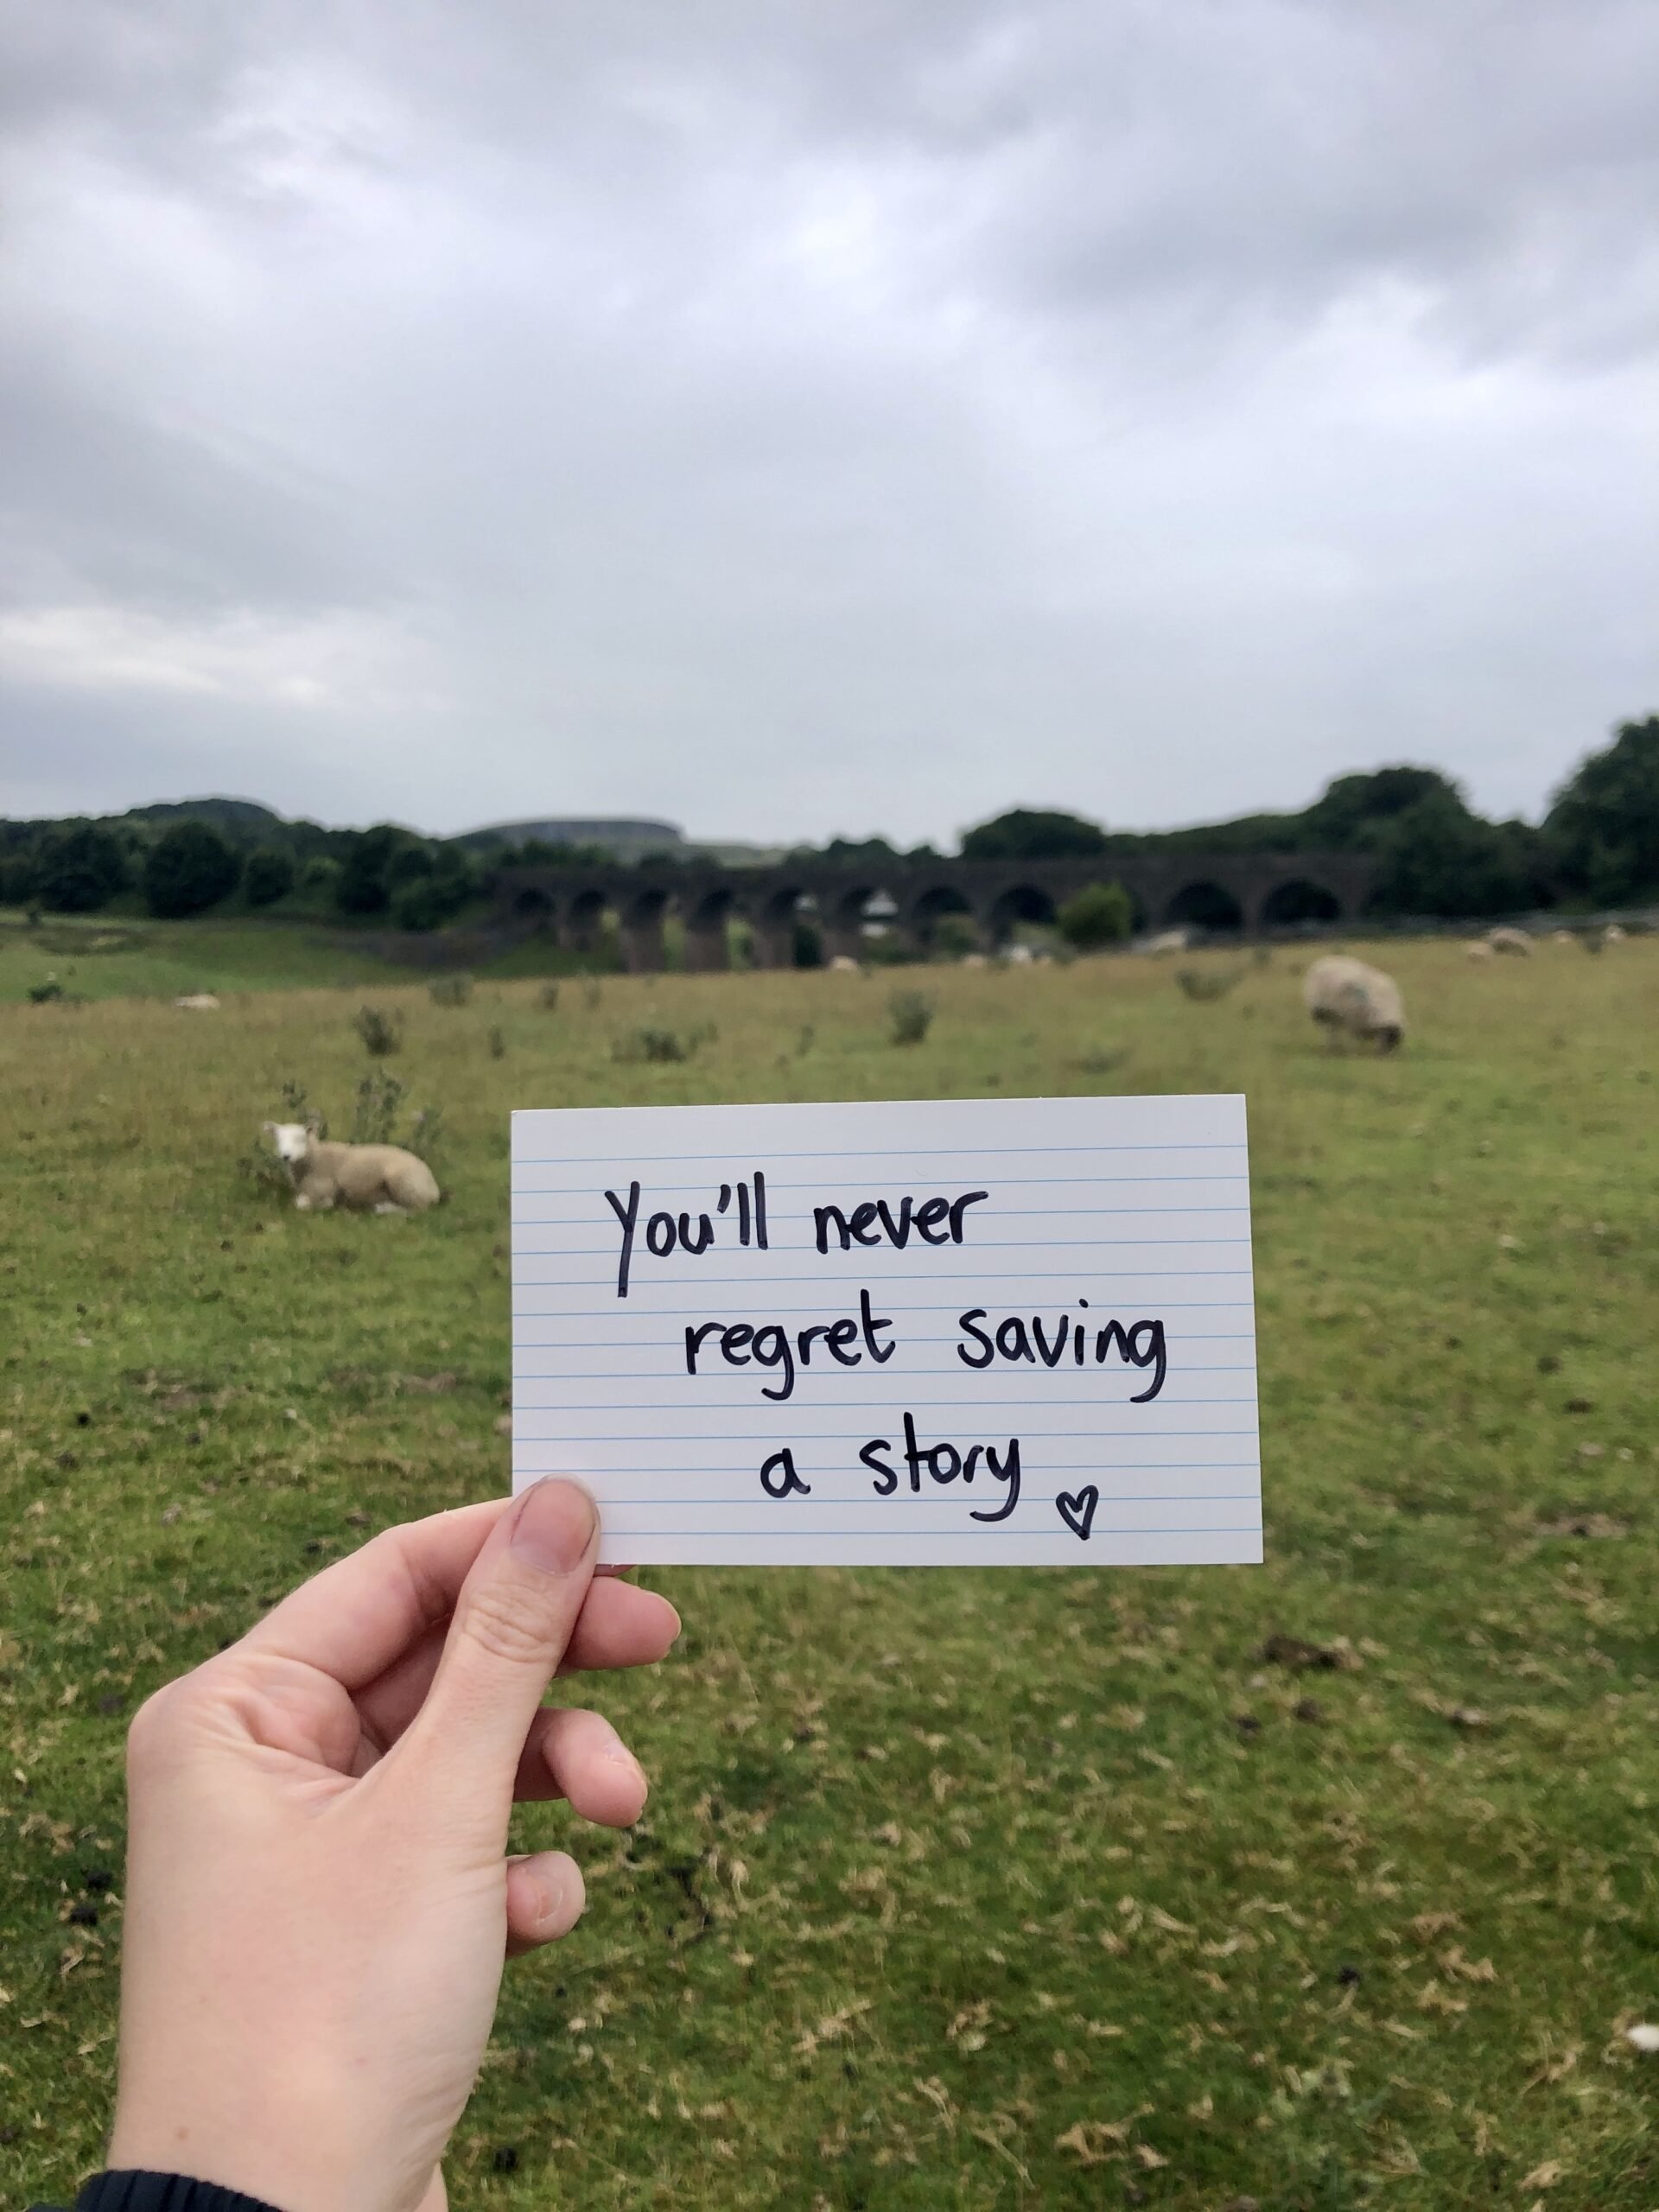 You'll never
regret saving
a story ♡